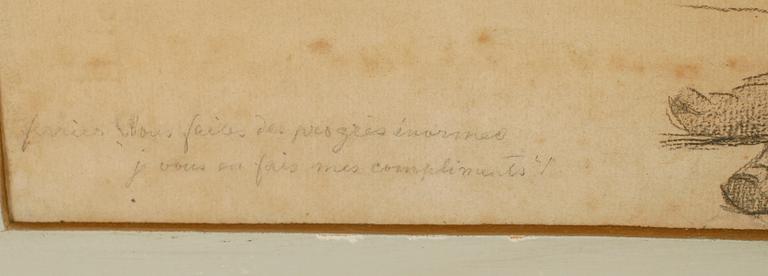 ferrier vous faites des progrès énormes
"j vous en fais mes compliments"!